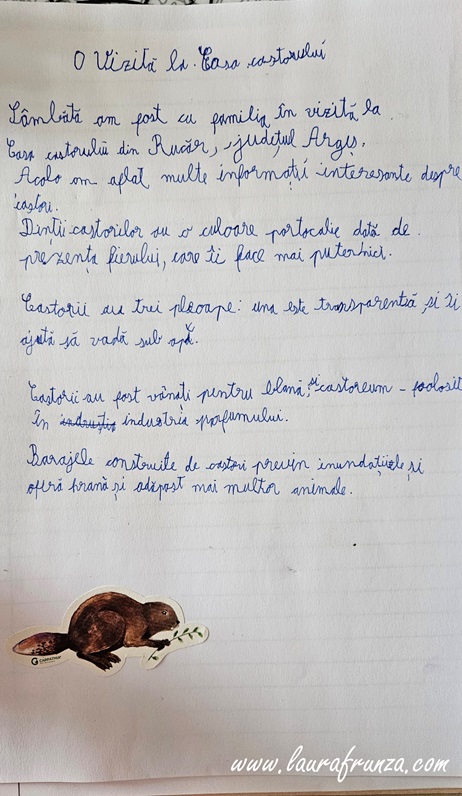 O Vizită la Casa castorului
Sâmbătă am fost cu familia în vizită la
Casa castorului din Rucăr, județul Argiș.
Acolo am aflat multe informații interesante despre
castori.
Dinții castorilor au o culoare portocalie dată de
prezența fierului, care îi face mai puternici.
Castorii au trei pleoape: una este transparentă și îi
ajută să vadă sub apă.
Castorii au fost vânați pentru blană și castoreum - folosit
în industria parfumului.
Barajele construite de castori previn inundațiile și
oferă hrană și adăpost mai multor animale.
www.laurafrunza.com